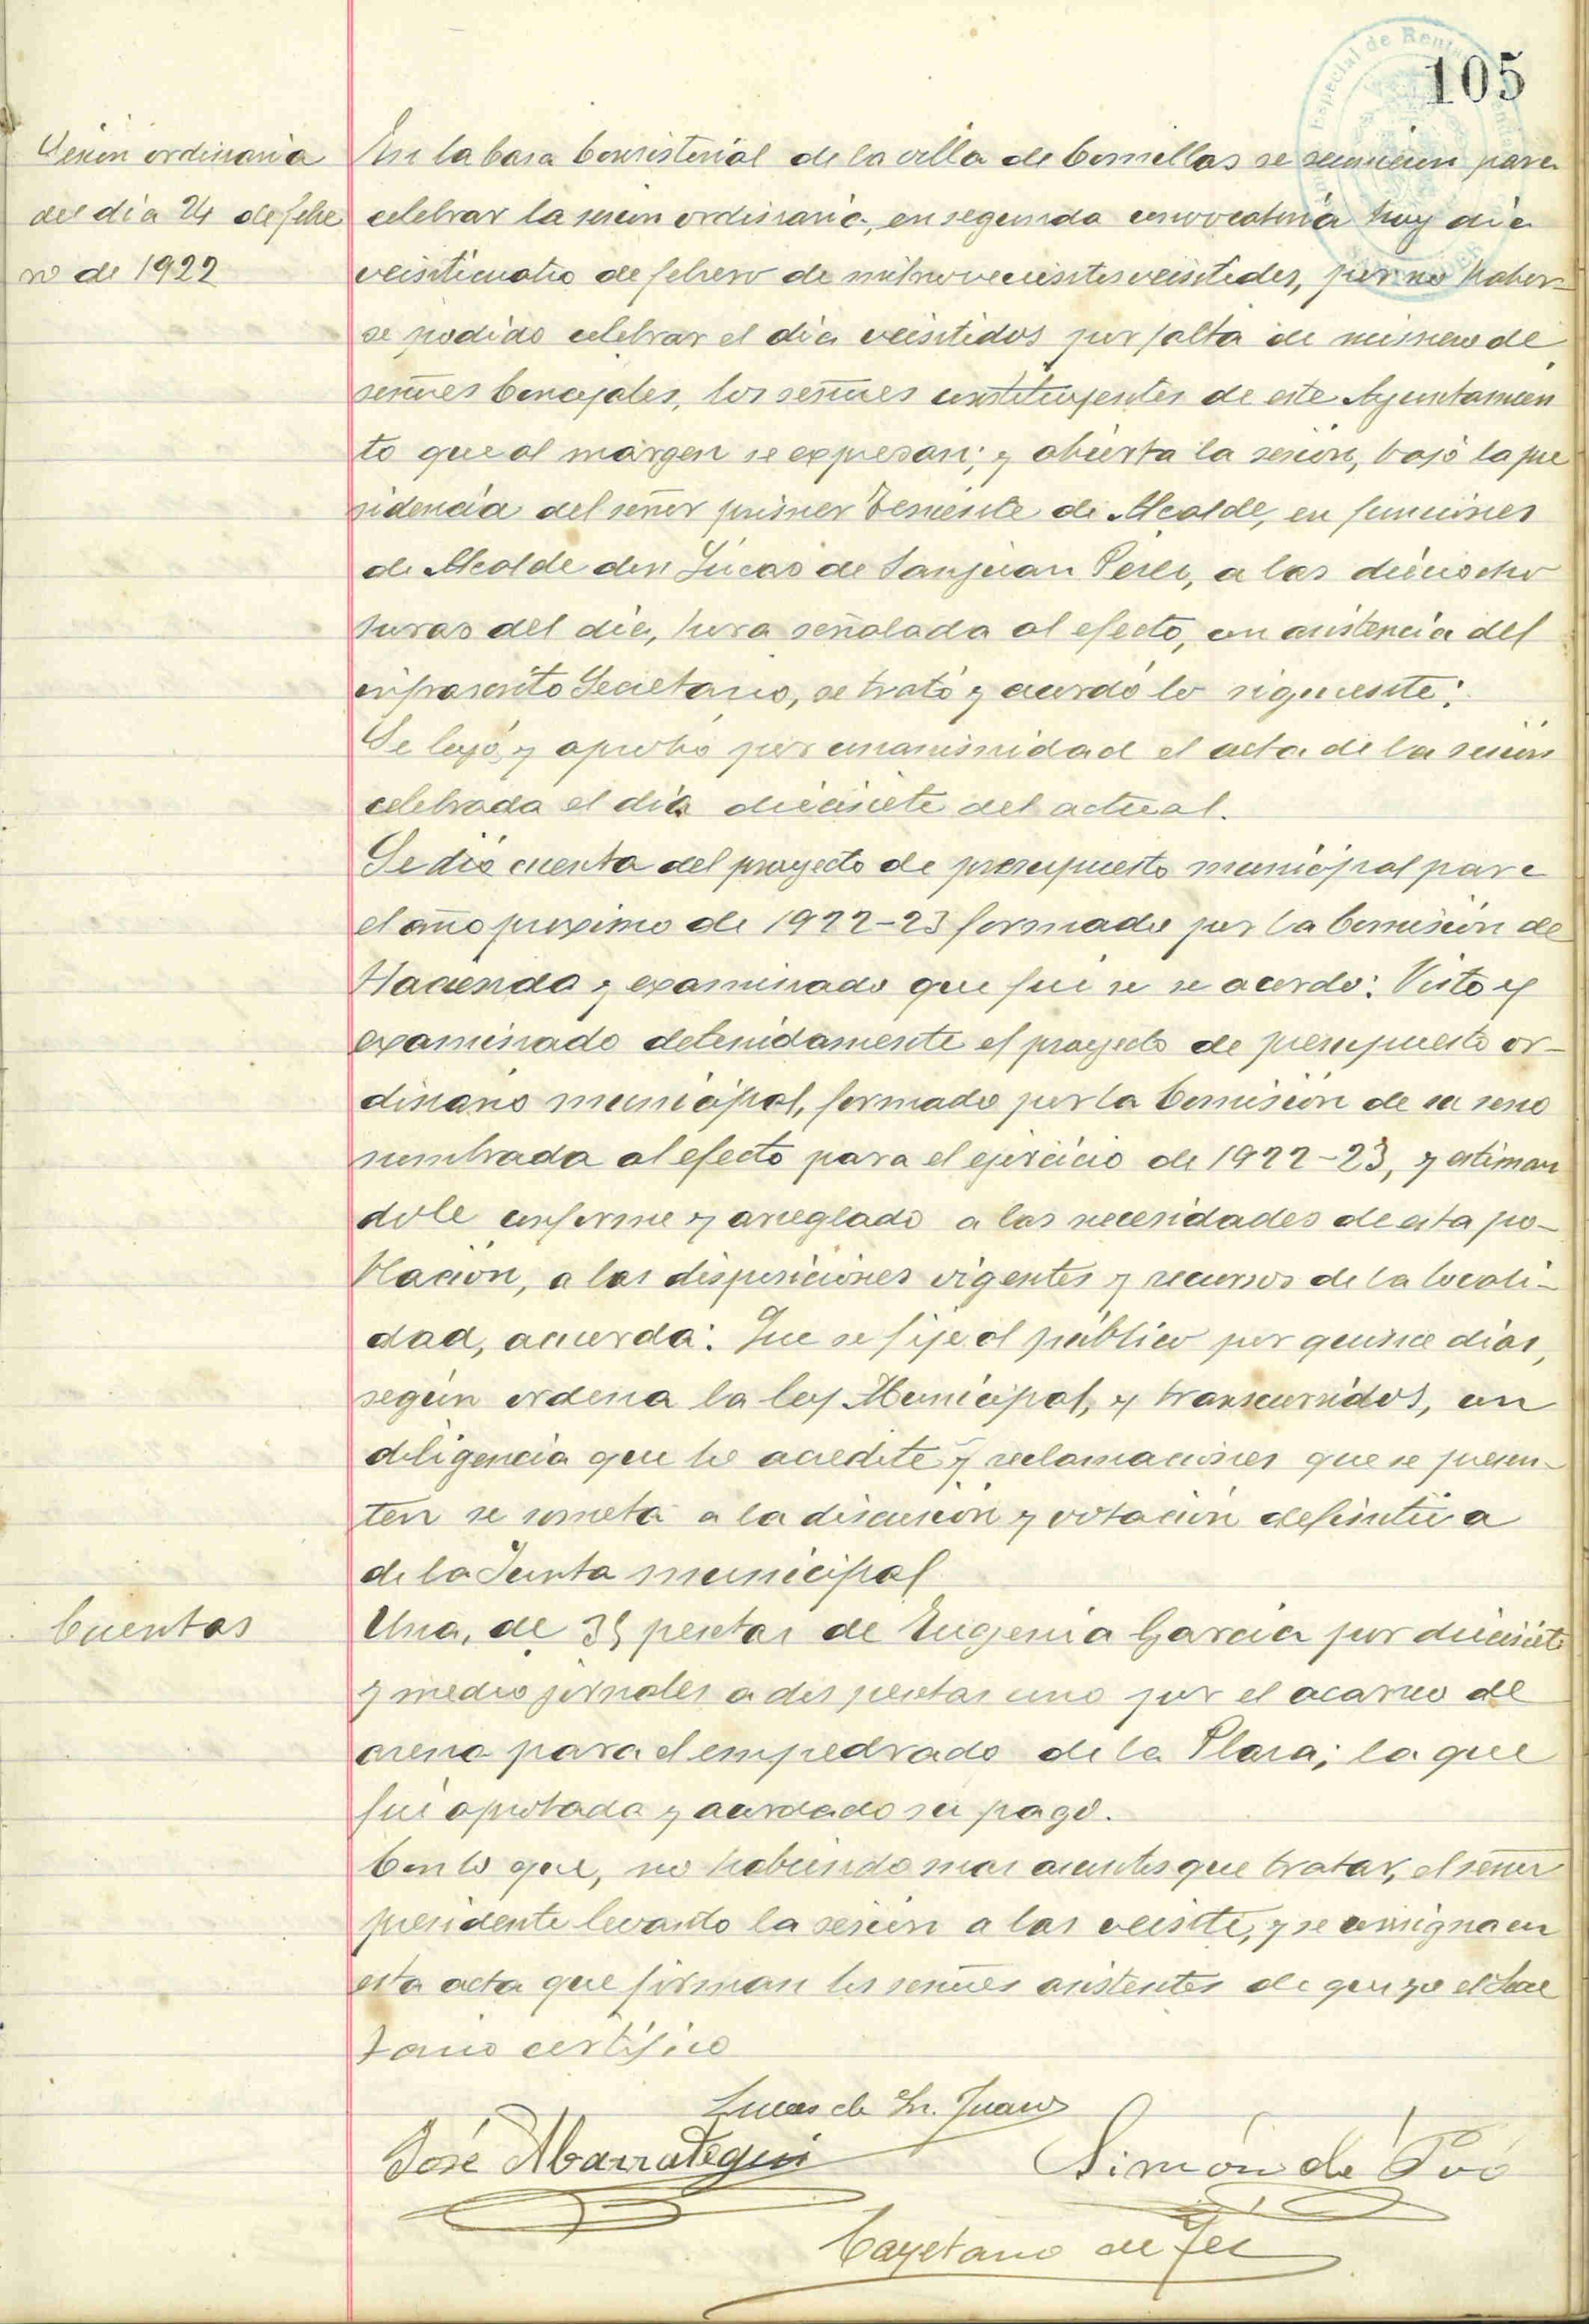 105
Sesión ordinaria
del dia 24 de febre
ro de 1922
En la Casa Consistorial de la villa de Comillas se reunieron para
celebrar la sesion ordinaria, en segunda convocatoria hoy dia
veinticuatro de febrero de mil novecientos veintidos, por no haber-
se podido celebrar el dia veintidos por falta de número de
señores Concejales, los señores constituyentes de este Ayuntamien
to que al márgen se expresan; y abierta la sesión, bajo la pre
sidencia del señor primer Teniente de Alcalde, en funciones
de Alcalde don Lucas de Sanjuan Perez, a las dieciocho
horas del dia, hora señalada al efecto, con asistencia del
infrascrito Secretario, se trató y acordó lo siguiente:
Se leyó y aprobó por unanimidad el acta de la sesión
celebrada el dia diecisiete del actual.
Se dió cuenta del proyecto de presupuesto municipal para
el año proximo de 1922-23 formado por la Comisión de
Hacienda y examinado que fué se se acordo: Visto y
examinado detenidamente el proyecto de presupuesto or-
dinario municipal, formado por la Comisión de su seno
nombrada al efecto para el ejercicio de 1922-23, y estiman
dole conforme y arreglado a las necesidades de esta po-
blación, a las disposiciones vigentes y recursos de la locali-
dad, acuerda: Que se fije al público por quince dias,
según ordena la ley Municipal, y transcurridos, con
diligencia que lo acredite y reclamaciones que se presen-
ten se someta a la discusión y votación definitiva
de la Junta municipal
Cuentas
Una, de 35 pesetas de Eugenia Garcia por diecisiete
y medio jornales a dos pesetas uno por el acarreo de
arena para el empedrado de la Plaza; la que
fué aprobada y acordado su pago.
Con lo que, no habiendo mas asuntos que tratar, el señor
presidente levanto la sesión a las veinte, y se consigna en
esta acta que firman los señores asistentes de que yo el Secre
tario certifico
Lucas de Sn. Juan
José Abarrategui
Simón de Poó
Cayetano de